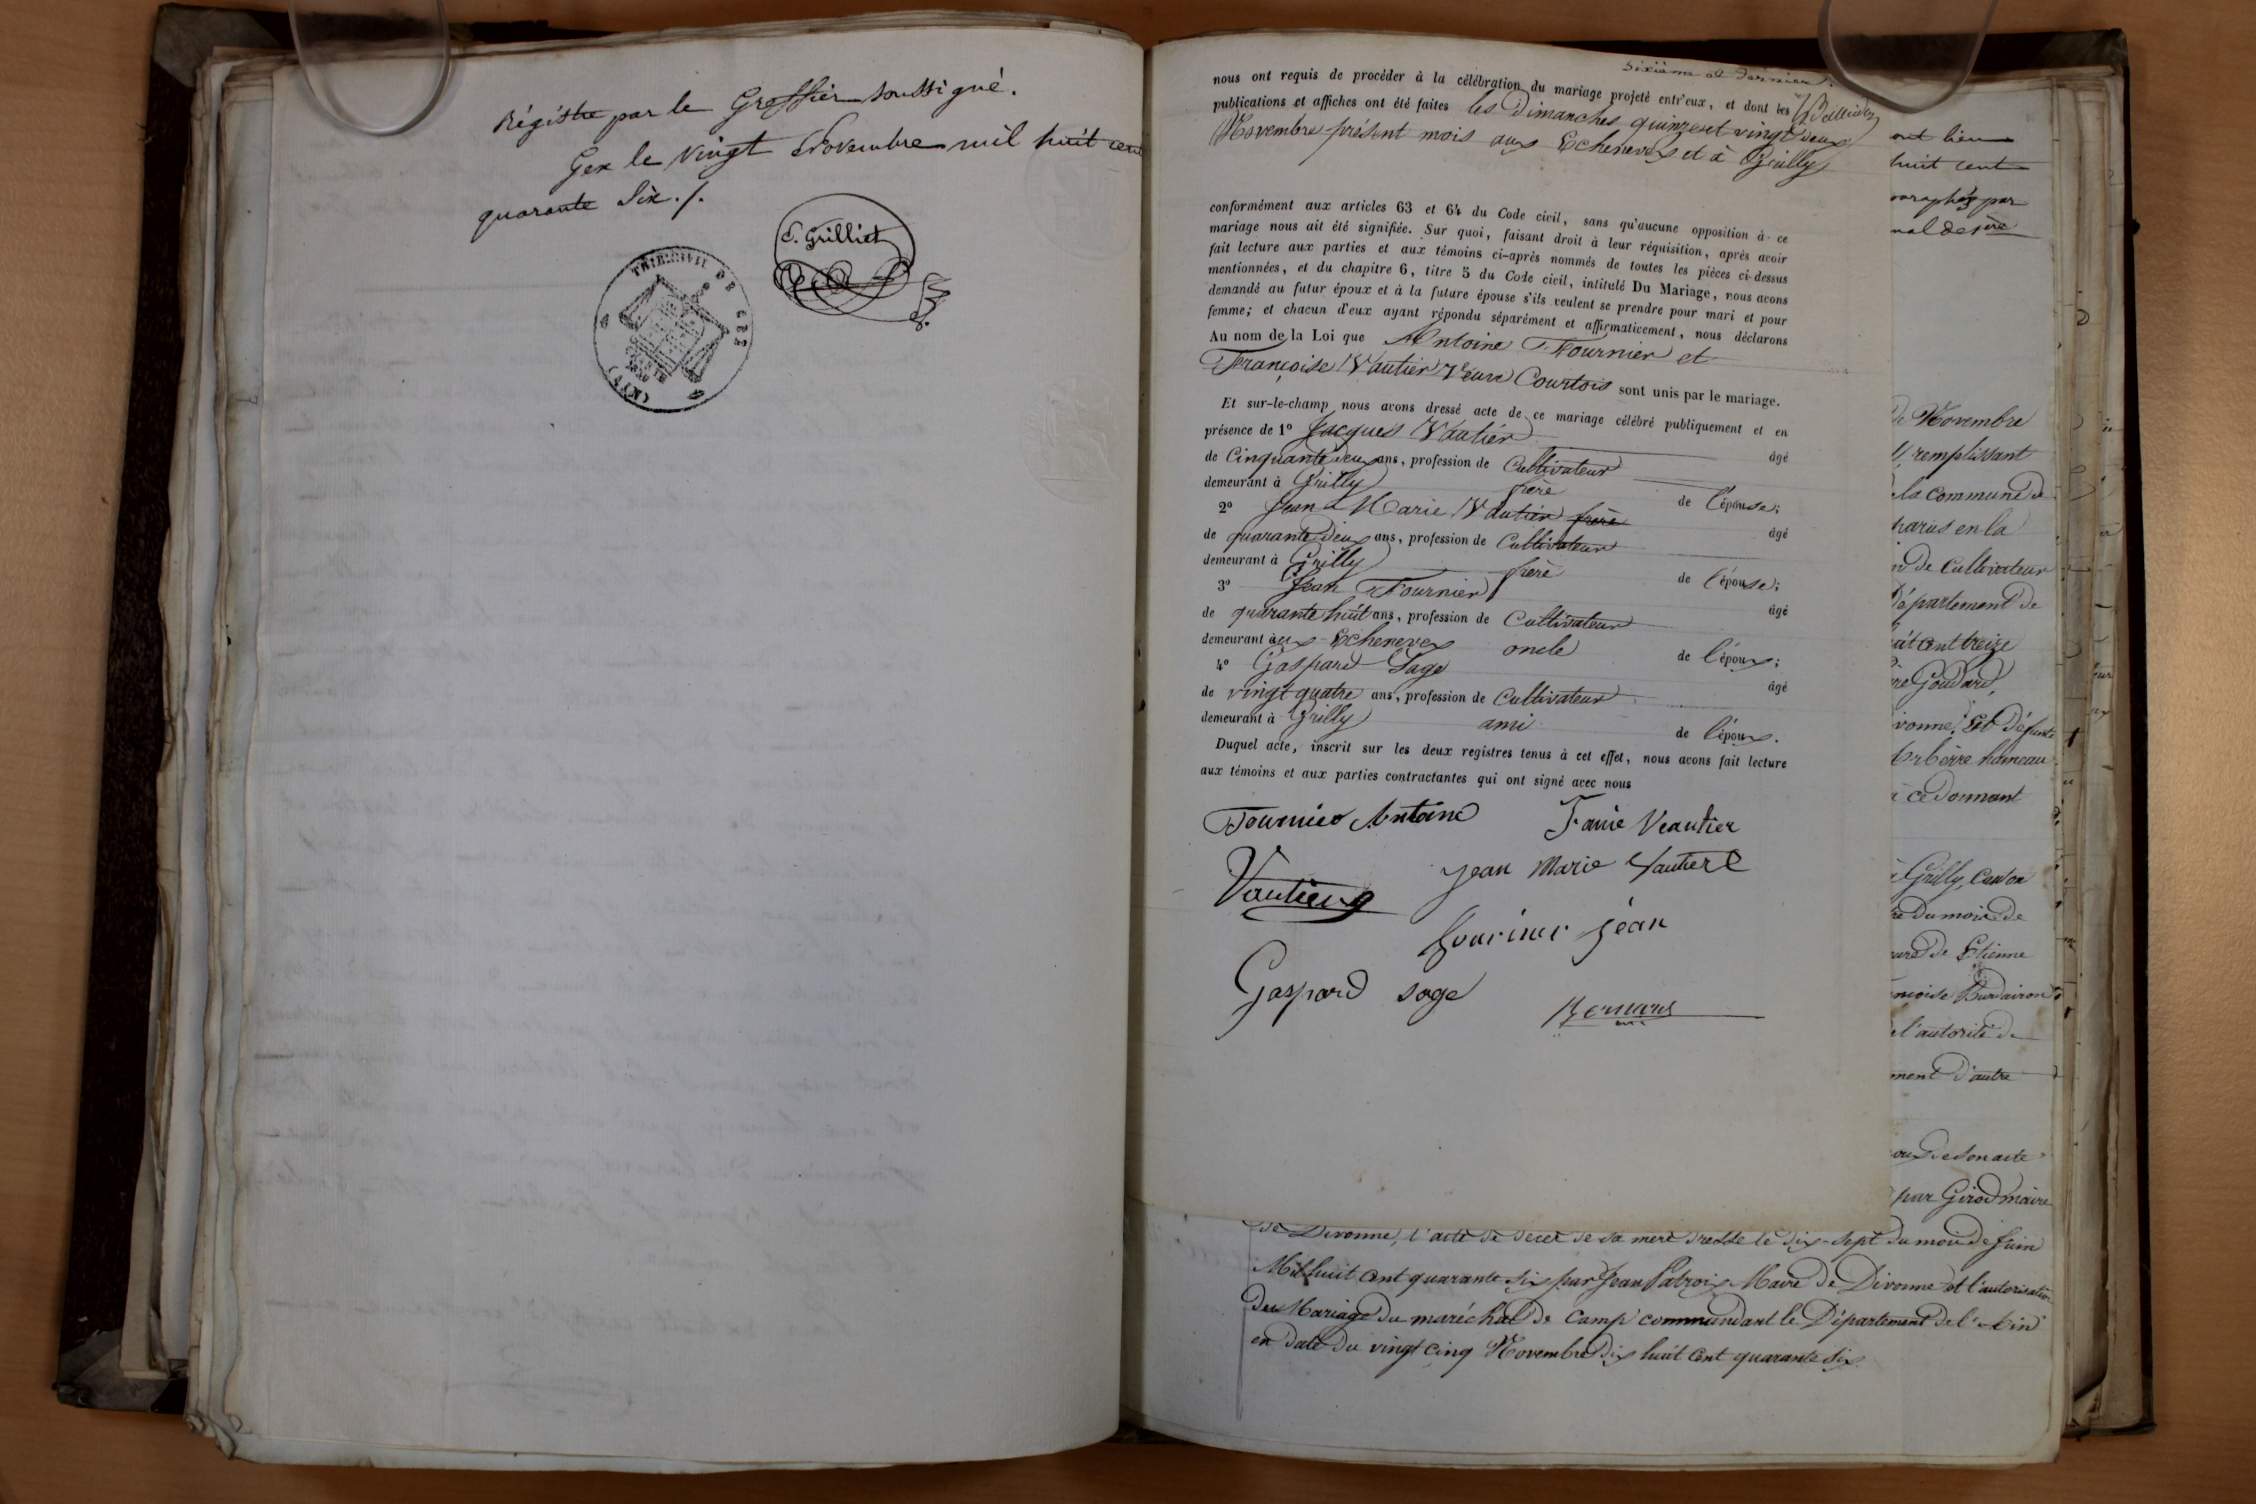 Régistre par le Greffier soussigné.
Gex le vingt Novembre mil huit cent
quarante six ./.
S. Grilliet
TRIB. CIVIL DE GEX
(AIN)
sixième et dernier.
nous ont requis de procéder à la célébration du mariage projeté entr'eux, et dont les
publications et affiches ont été faites les Dimanches quinze et vingt deux
Novembre présent mois aux Echenevex et à Grilly
conformément aux articles 63 et 64 du Code civil, sans qu'aucune opposition à ce
mariage nous ait été signifiée. Sur quoi, faisant droit à leur réquisition, après avoir
fait lecture aux parties et aux témoins ci-après nommés de toutes les pièces ci-dessus
mentionnées, et du chapitre 6, titre 5 du Code civil, intitulé Du Mariage, nous avons
demandé au futur époux et à la future épouse s'ils veulent se prendre pour mari et pour
femme; et chacun d'eux ayant répondu séparément et affirmativement, nous déclarons
Au nom de la Loi que Antoine Fournier et
Françoise Vautier Veuve Courtois sont unis par le mariage.
Et sur-le-champ nous avons dressé acte de ce mariage célébré publiquement et en
présence de 1° Jacques Vautier âgé
de Cinquante deux ans, profession de Cultivateur
demeurant à Grilly frère de l'épouse;
2° Jean Marie Vautier frère âgé
de quarante deux ans, profession de Cultivateur
demeurant à Grilly frère de l'épouse;
3° Jean Fournier âgé
de quarante huit ans, profession de Cultivateur
demeurant aux Echenevex oncle de l'époux;
4° Gaspard Sage âgé
de vingt quatre ans, profession de Cultivateur
demeurant à Grilly ami de l'époux.
Duquel acte, inscrit sur les deux registres tenus à cet effet, nous avons fait lecture
aux témoins et aux parties contractantes qui ont signé avec nous
Fournier Antoine
Vautier
Jean Marie Vautier
fourinier jean
Gaspard sage
ont lieu
huit cent
paraphé par
de Novembre
remplissant
la commune de
en la
de Cultivateur
département de
huit cent treize
Goudard,
vonne, et Défunte
hameau
à ce donnant
à Grilly,
du mois de
de Etienne
l'autorité de
ment d'autre
de son acte
par Girod maire
de Divonne, l'acte de décès de sa mère dressé le dix-sept du mois de Juin
Mil huit cent quarante six par Jean Patroix Maire de Divonne et l'autorisation
du Mariage du maréchal de Camp commandant le Département de l'Ain
en date du vingt cinq Novembre dix huit cent quarante six